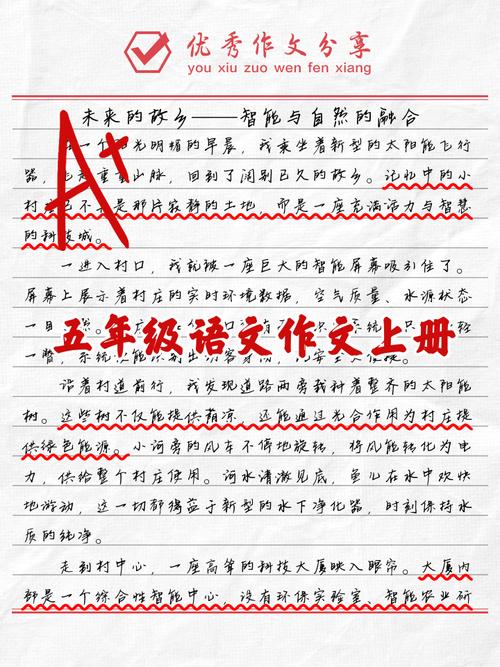 优秀作文分享
you xiu zuo wen fen xiang
未来的故乡——智能与自然的融合
一个 光明媚的早晨，我乘坐着新型的太阳能飞行
器， 山脉，回到了阔别已久的故乡。记忆中的小
村 已不 是那片寂静的土地，而是一座充满活力与智慧
的科技城。
A+
一进入村口，我就被一座巨大的智能屏幕吸引住了。
屏幕上展示着村庄的实时环境数据，空气质量、水源状态
一目
五年级语文作文上册
一瞥，系统
沿着村道前行，我发现道路两旁栽种着整齐的太阳能
树。这些树不仅能提供荫凉，还能通过光合作用为村庄提
供绿色能源。小河旁的风车不停地旋转，将风能转化为电
力，供给整个村庄使用。河水清澈见底，鱼儿在水中欢快
地游动，这一切都得益于新型的水下净化器，时刻保持水
质的纯净。
走到村中心，一座高等的科技大厦映入眼帘。大厦内
部是一个综合性智能中心，设有环保实验室、智能农业研